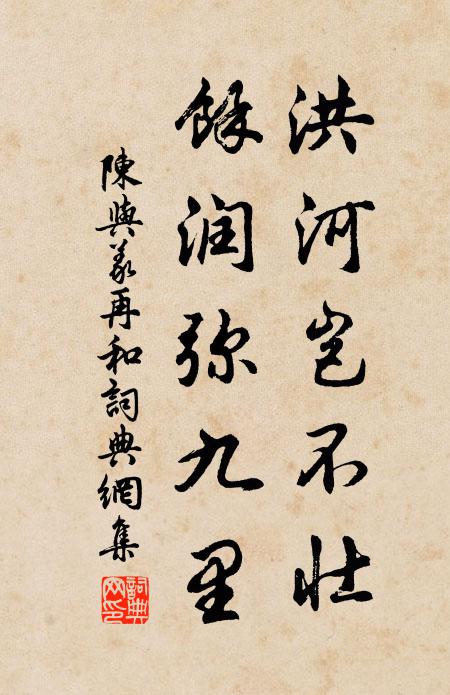 洪河岂不壮
餘润弥九里
陳與義再和詞典網集
詞典網印